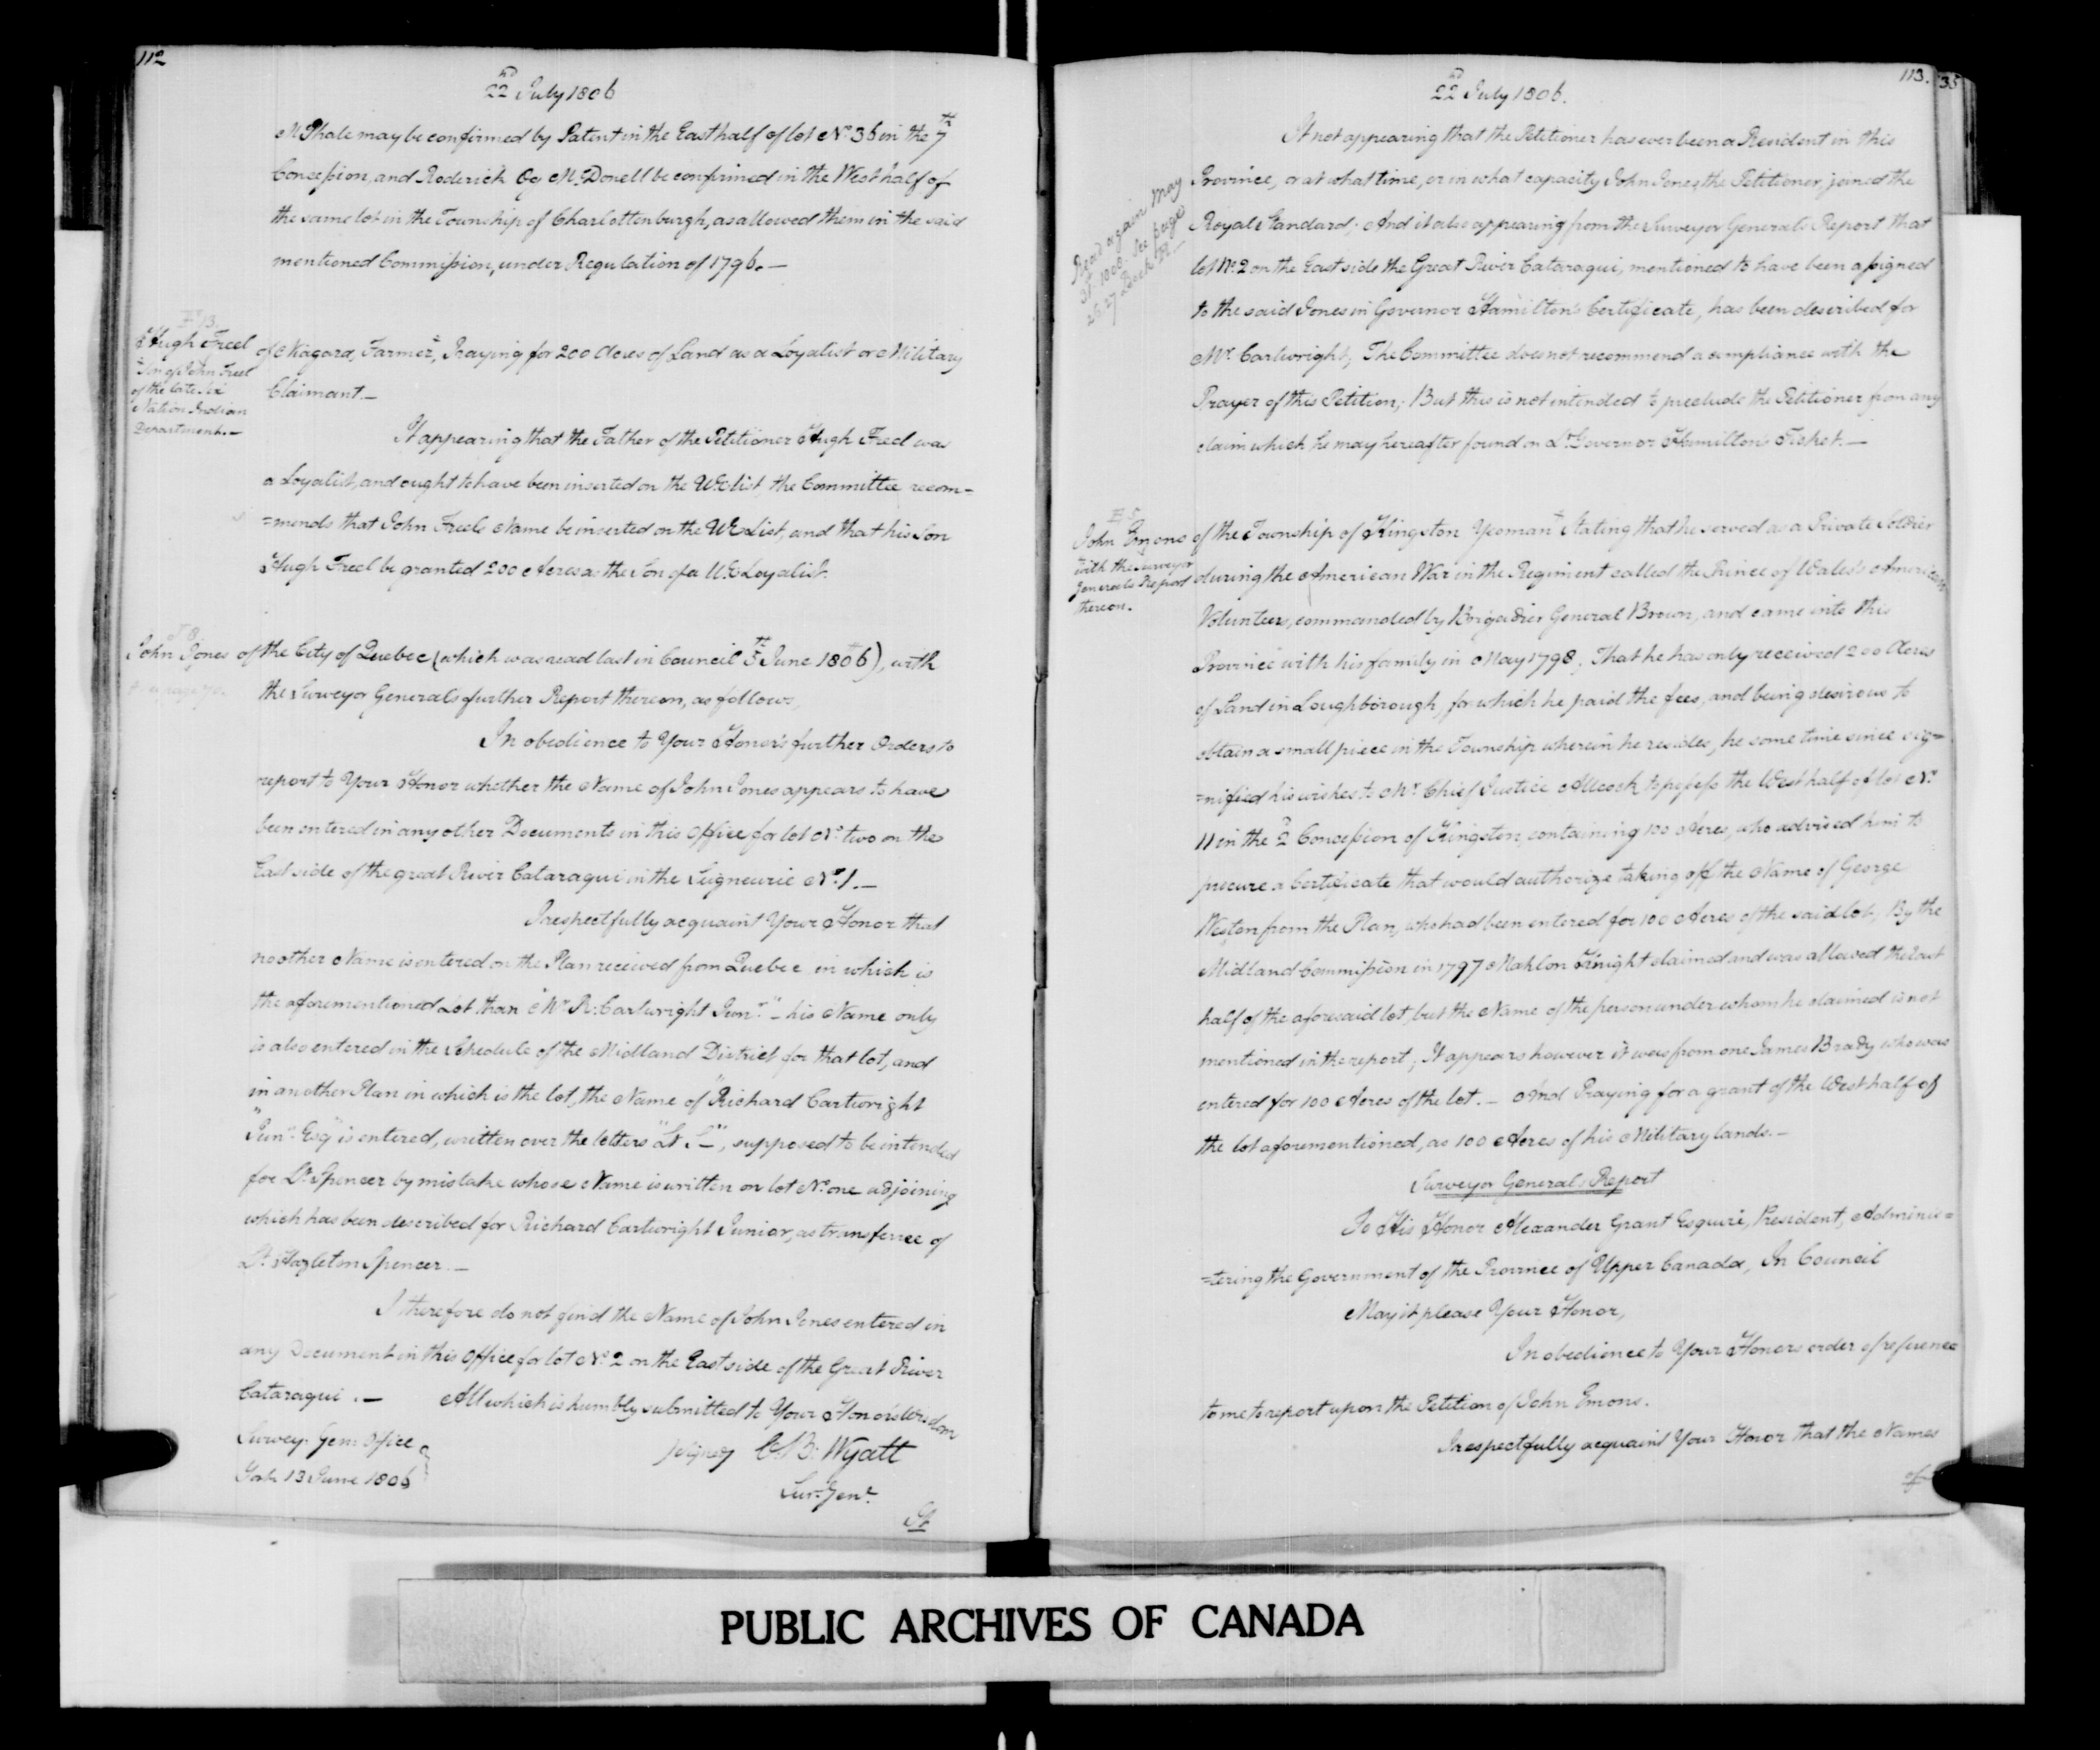 112
22nd July 1806
McPhale may be confirmed by Patent in the East half of lot No. 36 in the 7th
Concession, and Roderick Og McDonell be confirmed in the West half of
the same lot in the Township of Charlottenburgh, as allowed them in the said
mentioned Commission, under Regulation of 1796. —
Hugh Freel
Son of John Freel
of the late Six
Nation Indian
Department. —
of Niagara, Farmer, Praying for 200 Acres of Land as a Loyalist or Military
Claimant. —
It appearing that the Father of the Petitioner Hugh Freel was
a Loyalist, and ought to have been inserted on the UE list, the Committee recom=
=mends that John Freels Name be inserted on the UE List, and that his Son
Hugh Freel be granted 200 Acres as the Son of a UE Loyalist.
John Jones of the City of Quebec (which was read last in Council 5th June 1806), with
the Surveyor Generals further Report thereon, as follows,
In obedience to Your Honor's further Orders to
report to Your Honor whether the Name of John Jones appears to have
been entered in any other Documents in this Office for lot No. two on the
East side of the great River Cataraqui in the Seigneurie No. 1. —
I respectfully acquaint Your Honor that
no other Name is entered on the Plan received from Quebec in which is
the aforementioned Lot than "Mr. R. Cartwright Junr." — his Name only
is also entered in the Schedule of the Midland District for that lot, and
in another Plan in which is the lot, the Name of "Richard Cartwright
"Junr. Esq" is entered, written over the letters "Lt. S—", supposed to be intended
for Lt. Spencer by mistake whose Name is written on lot No. one adjoining
which has been described for Richard Cartwright Junior, as transferree of
Lt. Hazleton Spencer. —
I therefore do not find the Name of John Jones entered in
any Document in this Office for lot No. 2 on the East side of the Great River
Cataraqui. — All which is humbly submitted to Your Honors Wisdom
Survey. Gen: Office
York 13 June 1806
signed C. B. Wyatt
Sur. Genl.
It
113.
35
22nd July 1806.
It not appearing that the Petitioner has ever been a Resident in this
Province, or at what time, or in what capacity John Jones, the Petitioner, joined the
Royal Standard; And it also appearing from the Surveyor Generals Report that
lot No. 2 on the East side the Great River Cataraqui, mentioned to have been assigned
to the said Jones in Governor Hamilton's Certificate, has been described for
Mr. Cartwright; The Committee does not recommend a compliance with the
Prayer of this Petition; But this is not intended to preclude the Petitioner from any
claim which he may hereafter found on Lt. Governor Hamilton's Ticket. —
Read again May
See page
John Emons
with the Surveyor
Generals Report
thereon.
of the Township of Kingston Yeoman Stating that he served as a Private Soldier
during the American War in the Regiment called the Prince of Wales's American
Volunteers, commanded by Brigadier General Brown, and came into this
Province with his family in May 1798; That he has only received 200 Acres
of Land in Loughborough, for which he paid the fees, and being desirous to
obtain a small piece in the Township wherein he resides, he some time since sig=
=nified his wishes to Mr. Chief Justice Allcock to possess the West half of lot No.
11 in the 2d Concession of Kingston, containing 100 Acres, who advised him to
procure a Certificate that would authorize taking off the Name of George
Weston from the Plan, who had been entered for 100 Acres of the said lot; By the
Midland Commission in 1797 Mahlon Knight claimed and was allowed the East
half of the aforesaid lot, but the Name of the person under whom he claimed is not
mentioned in the report; It appears however it was from one James Brady who was
entered for 100 Acres of the lot. — And Praying for a grant of the West half of
the lot aforementioned, as 100 Acres of his Military lands. —
Surveyor General's Report
To His Honor Alexander Grant Esquire, President, Adminis=
=tering the Government of the Province of Upper Canada, In Council
May it please Your Honor,
In obedience to Your Honors order of reference
to me to report upon the Petition of John Emons.
I respectfully acquaint Your Honor that the Names
of
PUBLIC ARCHIVES OF CANADA